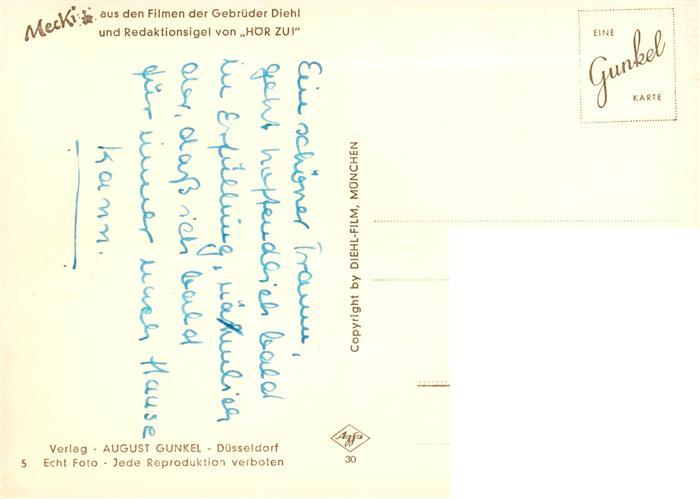 Mecki aus den Filmen der Gebrüder Diehl
und Redaktionsigel von „HÖR ZU!"
EINE
Gunkel
KARTE
Ein schöner Traum,
geht hoffendlich bald
in Erfüllung, nähmlich
der, daß ich bald
für immer nach Hause
kann.
Copyright by DIEHL-FILM, MÜNCHEN
Verlag - AUGUST GUNKEL - Düsseldorf
5 Echt Foto - Jede Reproduktion verboten
Agfa
30